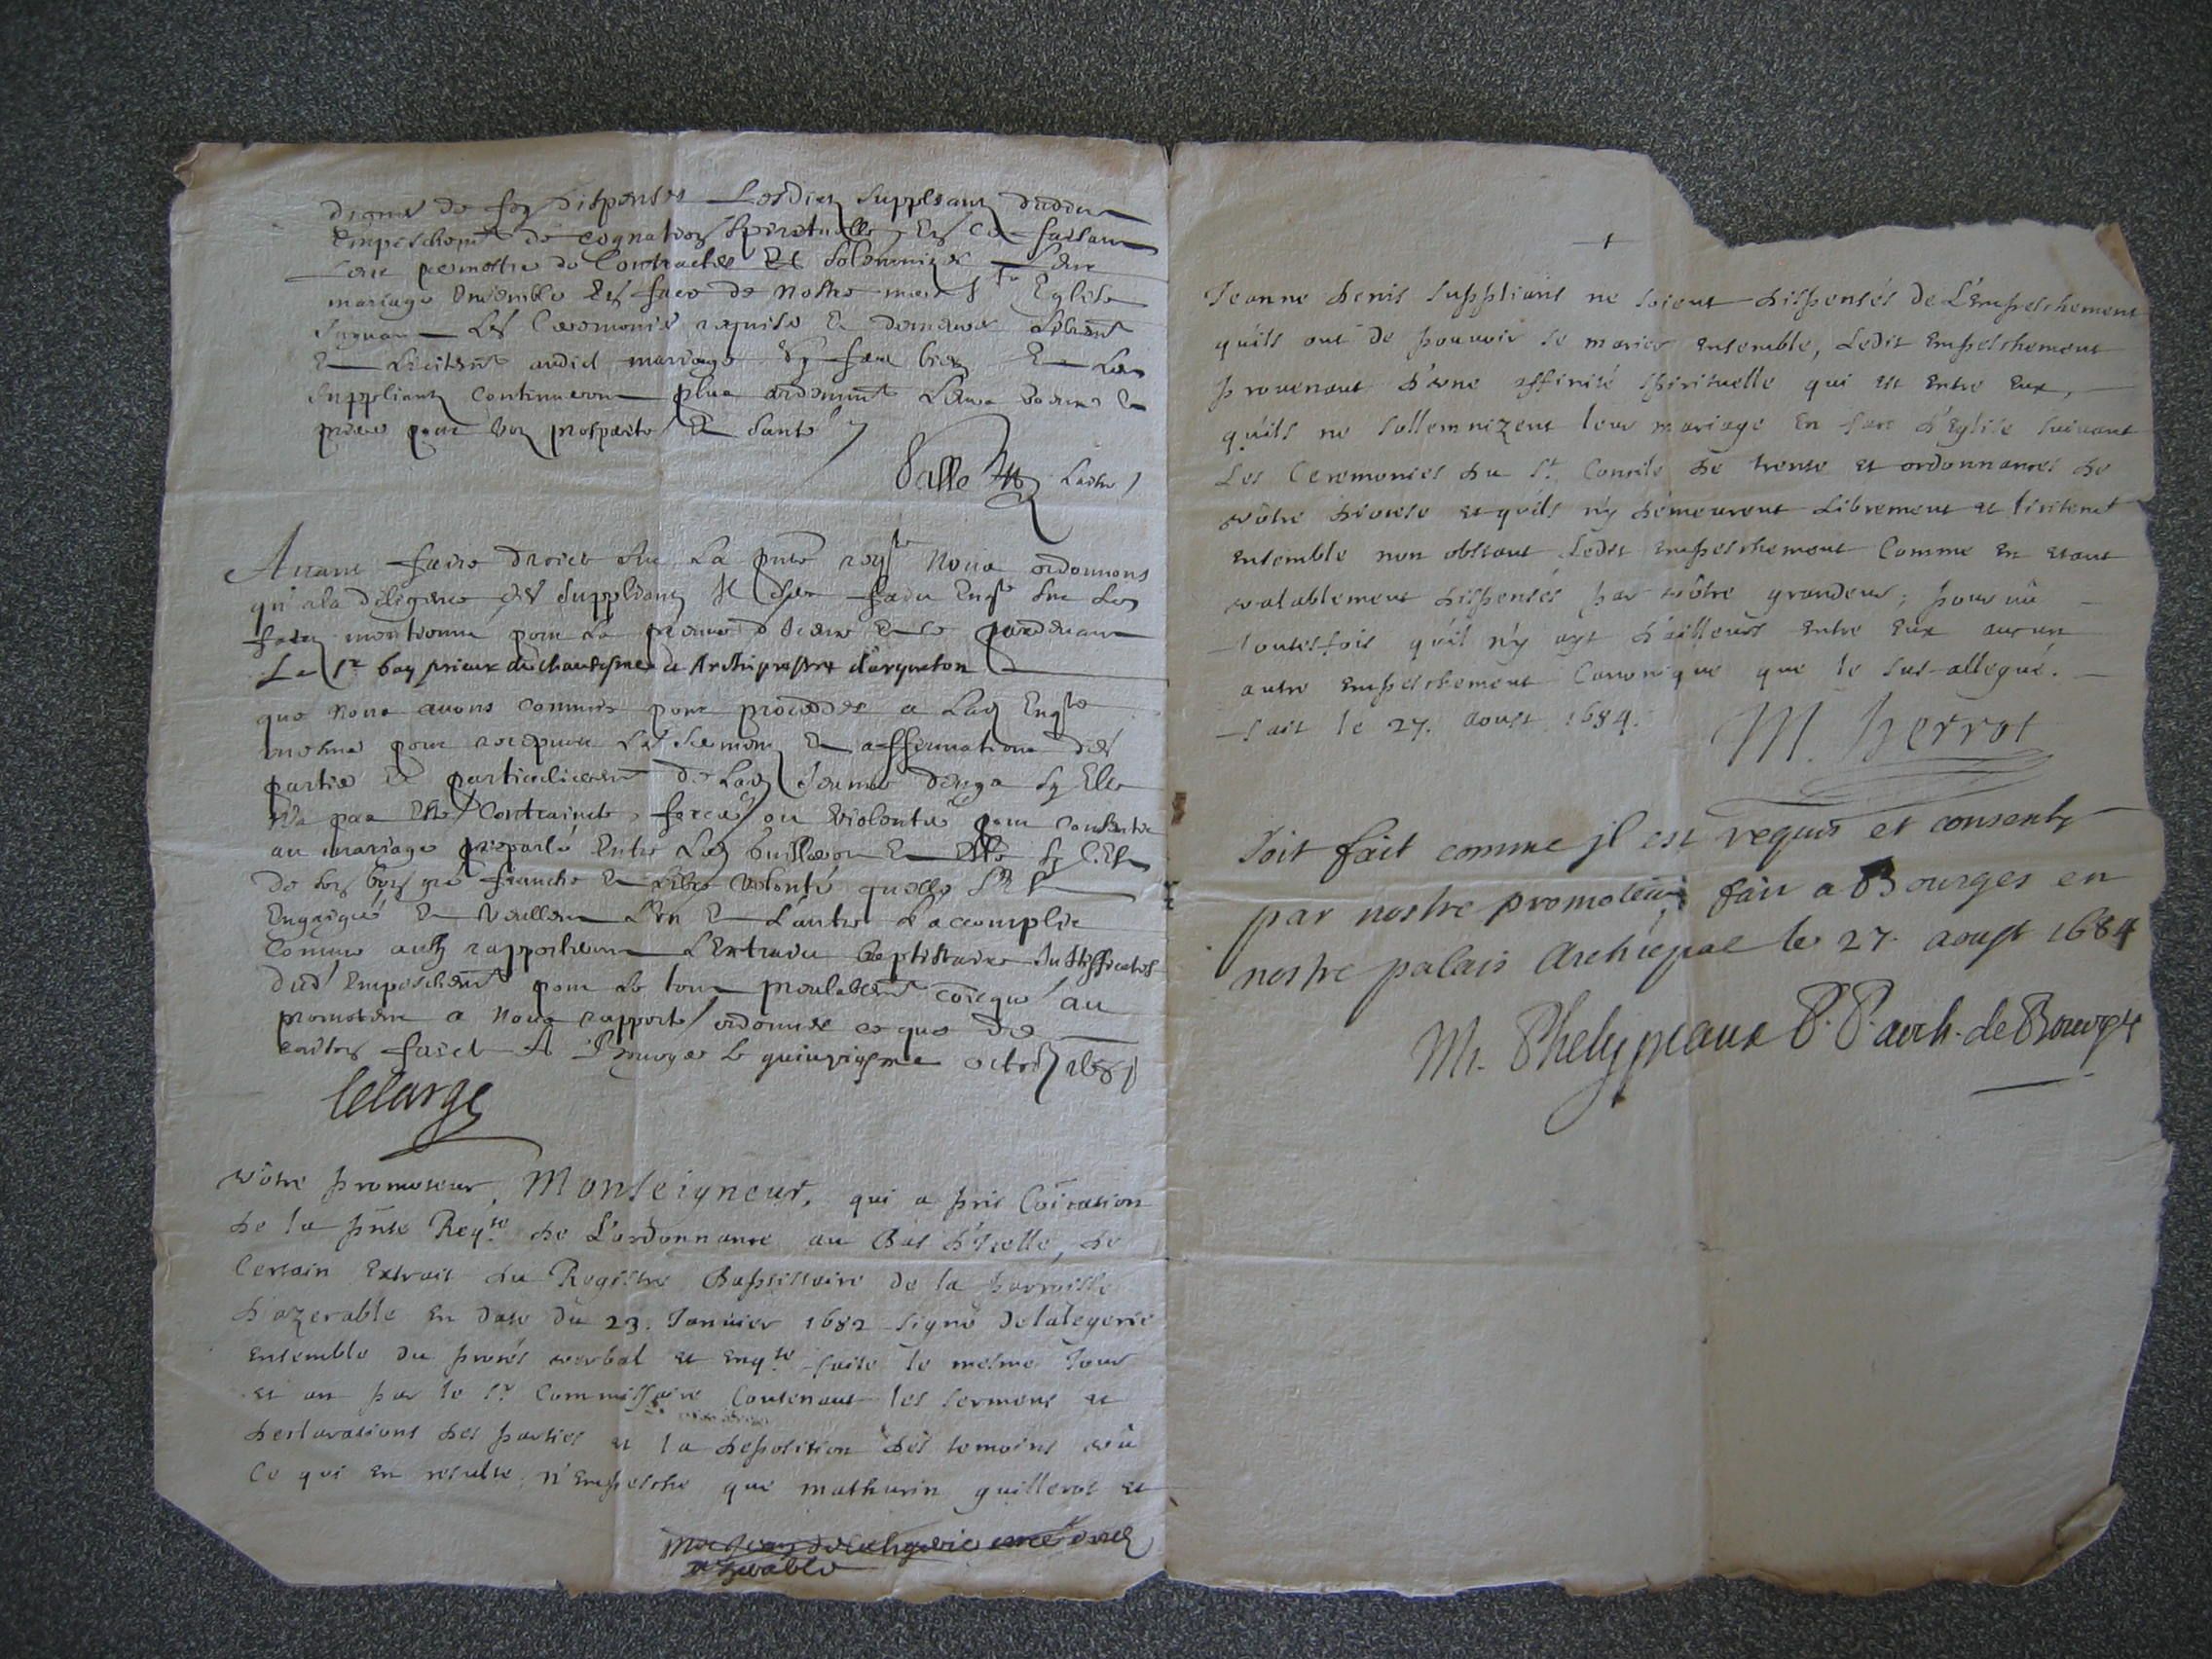 digne de foy dispenser Lesdicts supplians dudict
Empeschemt de cognation spirituelle En ce faisant
Leur permettre de Contracter Et solemniser Leur
mariage Ensemble En face de nostre mere Ste Eglise
suyvant Les Ceremonies requise Et demeurer librement
Et Licitemt audict mariage Sy fera bien Et Les
supplians continueront plus ardemmt Leurs voeux Et
prieres pour vos prosperité Et santé

Avant faire droict sur La pnte reqte Nous ordonnons
qu'a la diligence des supplians Il sera faict Enqte sur Les
faicts mentionné pour La preuve d'iceux Et ce pardevant
Le Sr bay prieur du chantosme et Archiprestre d'argenton
que nous avons commis pour proceder a Lad Enqte
mesme pour recepvoir Les sermens Et affirmations des
partie Et particulieremt de Lad Jeanne denys sy Elle
N'a pas Esté Contrainte, forcée ou violentée pour consentir
au mariage preparlé Entre Led Guilleron Et Elle sy C'est
de son bon gré franche Et Libre volonté quelle s'y est
Engagée Et veullent L'un Et L'autre L'accomplir
Comme aussy rapporteront L'Extraict baptistaire Justifficatif
dud Empeschemt pour Le tout prealablemt coicqué au
promoteur a Nous rapporté ordonner ce que de
raison faict A Bourges Le quinziesme octob 1681
lelarge
vôtre promoteur, Monseigneur, qui a pris Coication
de la pnte Reqte de L'ordonnance au Bas d'Icelle, de
Certain Extrait du Registre Baptistaire de la parroisse
d'azerable en date du 23. Janvier 1682 signé Delalegerie
Ensemble du procés verbal et Enqte faite le mesme Jour
et an par le Sr. Commissaire Contenant les sermens et
declarations des parties et la deposition des temoins vû
Ce qui en resulte, n'Empesche que mathurin guillerot et
azerable
+
Jeanne denis supplians ne soient dispensés de L'Empeschement
qu'ils ont de pouvoir se marier ensemble, Ledit Empeschement
provenant d'une affinité spirituelle qui est entre Eux,
qu'ils ne sollemnizent leur mariage en face d'Eglise suivant
Les Ceremonies du St. Concile de trente et ordonnances de
vôtre diocese et qu'ils n'y demeurent Librement et licitemt
ensemble non obstant Ledit Empeschement Comme en etant
valablement dispensés par vôtre grandeur; pourvû
toutesfois qu'il n'y ayt d'ailleurs entre Eux aucun
autre Empeschement Canonique que le sus-allegué.
fait le 27. aoust 1684. M. perrot
Soit fait comme jl est requis et consenty
par nostre promoteur, fait a Bourges en
nostre palais Archiépāl le 27. aoust 1684
M. Phelypeaux P. P. arch. de Bourges